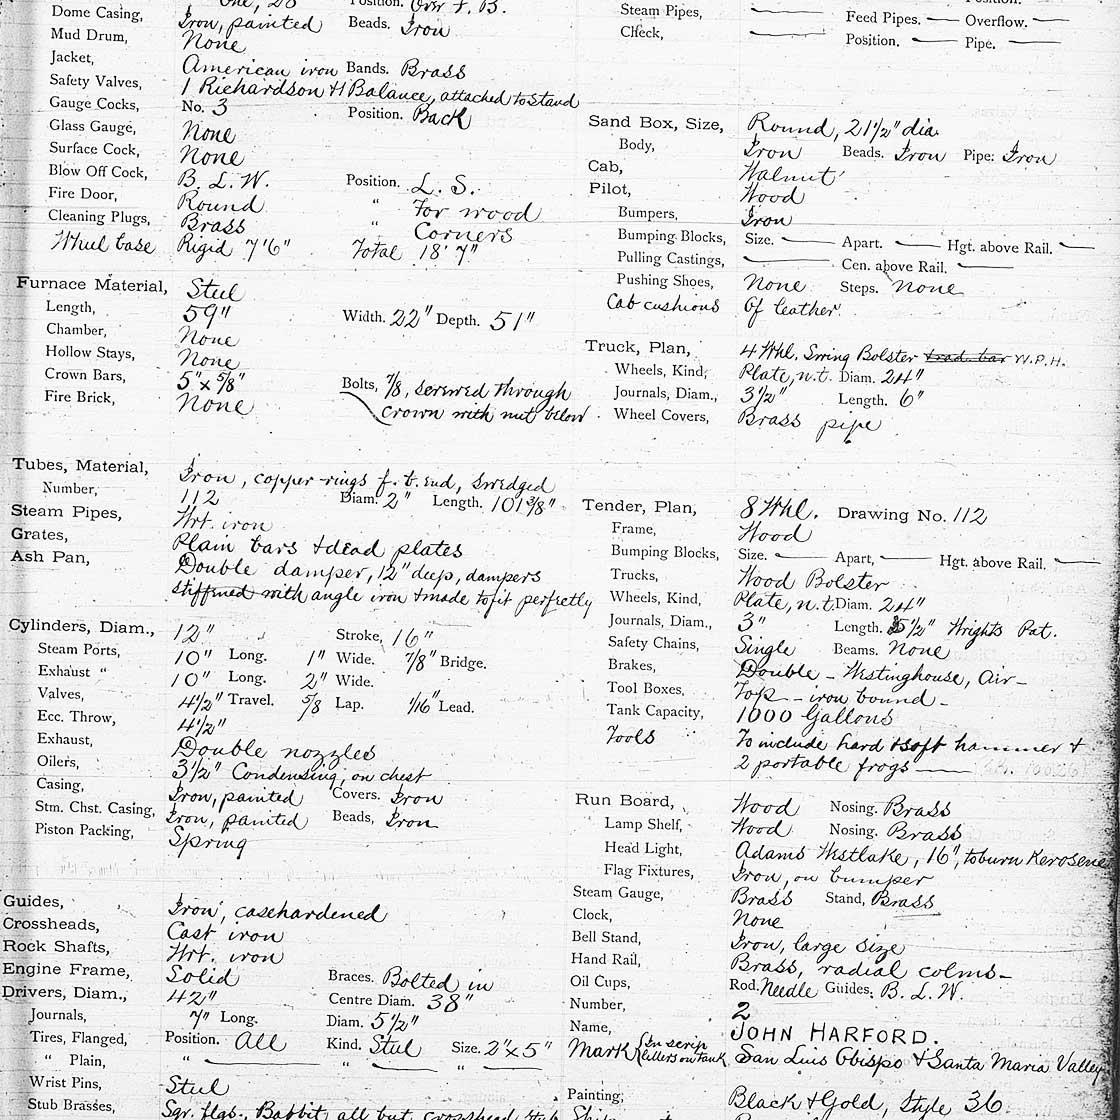 One, 20 Position. Over F. B.
Dome Casing, Iron, painted Beads. Iron
Mud Drum, None
Jacket, American iron Bands. Brass
Safety Valves, 1 Richardson + 1 Balance, attached to stand
Gauge Cocks, No. 3 Position. Back
Glass Gauge, None
Surface Cock, None
Blow Off Cock, B. L. W. Position. L. S.
Fire Door, Round " For wood
Cleaning Plugs, Brass " Corners
Wheel base Rigid 7'6" Total 18' 7"
Furnace Material, Steel
Length, 59" Width. 22" Depth. 51"
Chamber, None
Hollow Stays, None
Crown Bars, 5" x 5/8" Bolts, 7/8, screwed through
Fire Brick, None crown with nut below
Tubes, Material, Iron, copper rings f. t. end, swedged
Number, 112 Diam. 2" Length. 101 3/8"
Steam Pipes, Wrt. iron
Grates, Plain bars + dead plates
Ash Pan, Double damper, 12" deep, dampers
stiffened with angle iron + made to fit perfectly
Cylinders, Diam., 12" Stroke, 16"
Steam Ports, 10" Long. 1" Wide. 7/8" Bridge.
Exhaust " 10" Long. 2" Wide.
Valves, 4 1/2" Travel. 5/8 Lap. 1/16" Lead.
Ecc. Throw, 4 1/2"
Exhaust, Double nozzles
Oilers, 3 1/2" Condensing, on chest
Casing, Iron, painted Covers. Iron
Stm. Chst. Casing, Iron, painted Beads, Iron
Piston Packing, Spring
Guides, Iron, casehardened
Crossheads, Cast iron
Rock Shafts, Wrt. iron
Engine Frame, Solid Braces. Bolted in
Drivers, Diam., 42" Centre Diam. 38"
Journals, 7" Long. Diam. 5 1/2"
Tires, Flanged, Position. All Kind. Steel Size. 2" x 5"
" Plain, " " "
Wrist Pins, Steel
Stub Brasses, Sqr. flgs., Babbit, all but crosshead stub
Position.
Steam Pipes, Feed Pipes. Overflow.
Check, Position. Pipe.
Sand Box, Size, Round, 21 1/2" dia.
Body, Iron Beads. Iron Pipe: Iron
Cab, Walnut
Pilot, Wood
Bumpers, Iron
Bumping Blocks, Size. Apart. Hgt. above Rail.
Pulling Castings, Cen. above Rail.
Pushing Shoes, None Steps. None
Cab cushions Of leather.
Truck, Plan, 4 Whl. Swing Bolster trad. bar W.P.H.
Wheels, Kind, Plate, n.t. Diam. 24"
Journals, Diam., 3 1/2" Length. 6"
Wheel Covers, Brass pipe
Tender, Plan, 8 Whl. Drawing No. 112
Frame, Wood
Bumping Blocks, Size. Apart, Hgt. above Rail.
Trucks, Wood Bolster
Wheels, Kind, Plate, n.t. Diam. 24"
Journals, Diam., 3" Length. 5 1/2" Wrights Pat.
Safety Chains, Single Beams. None
Brakes, Double - Westinghouse, Air -
Tool Boxes, Top - iron bound -
Tank Capacity, 1000 Gallons
Tools To include hard + soft hammer +
2 portable frogs
Run Board, Wood Nosing. Brass
Lamp Shelf, Wood Nosing. Brass
Head Light, Adams Westlake, 16", to burn Kerosene
Flag Fixtures, Iron, on bumper
Steam Gauge, Brass Stand, Brass
Clock, None
Bell Stand, Iron, large size
Hand Rail, Brass, radial colms -
Oil Cups, Rod. Needle Guides. B. L. W.
Number, 2
Name, JOHN HARFORD.
Mark {In scrip letters on tank San Luis Obispo + Santa Maria Valley
Painting, Black + Gold, Style 36